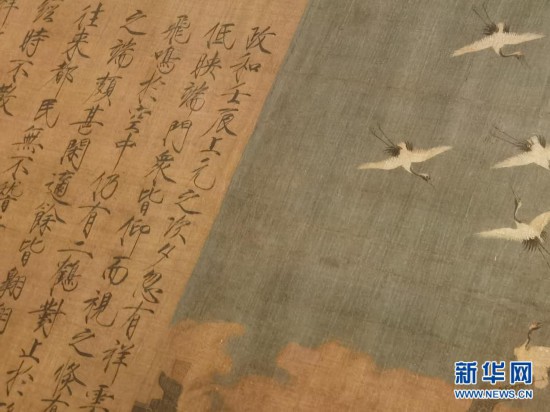 政和壬辰上元之次夕忽有祥雲
低映端門衆皆仰而視之倏有
飛鳴於空中仍有二鶴對止於
之端頗甚閑適餘皆翱翔
往來都民無不稽
經時不散
新华网
WWW.NEWS.CN